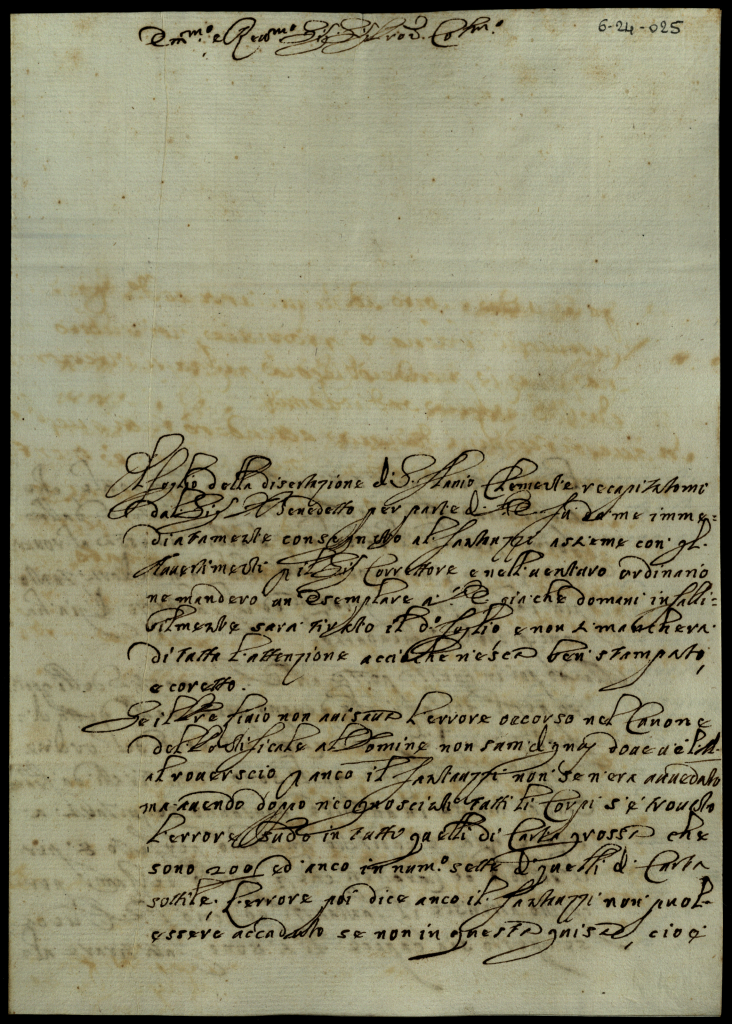 6-24-025
Em.mo e Rev.mo Sig. Sig. Prod. Col.mo
Il foglio della disertazione di S. Flavio Clemente recapitatomi
dal Sig. Benedetto per parte di V.E. fù da me imme=
diatamente consegnato al Fantauzzi assieme con gl.
Avertimenti p il Sig. Correttore e nell'venturo ordinario
ne mandero un Esemplare a V.E. gia che domani infalli=
bilmente sara tirato il d.o foglio e non si manchera
di tutta l'attenzione accioche n'esca ben stampato,
e coretto.
Se il Pre finio non avisava l'errore occorso nel Canone
del Pontificale al Domine non sum dignus dove v'è
al roverscio p anco il Fantauzzi non se n'era avveduto
ma avendo doppo ricognosciuti tutti li Corpi s'è trovato
l'errore sudo in tutti quelli di Carta grossa che
sono 200 ed anco in num.o sette di quelli di Carta
sottile, l'errore poi dice anco il Fantauzzi non puol
essere accaduto se non in questa guisa, cioè